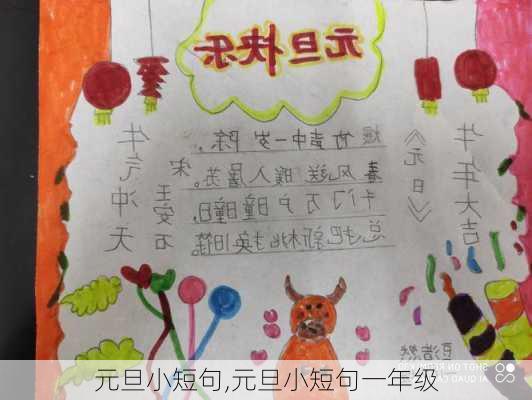 元旦快乐
牛年大吉
《元日》
宋
王安石
爆竹声中一岁除，
春风送暖入屠苏。
千门万户曈曈日，
总把新桃换旧符。
牛气冲天
SHOT ON
AI QUAD
元旦小短句,元旦小短句一年级